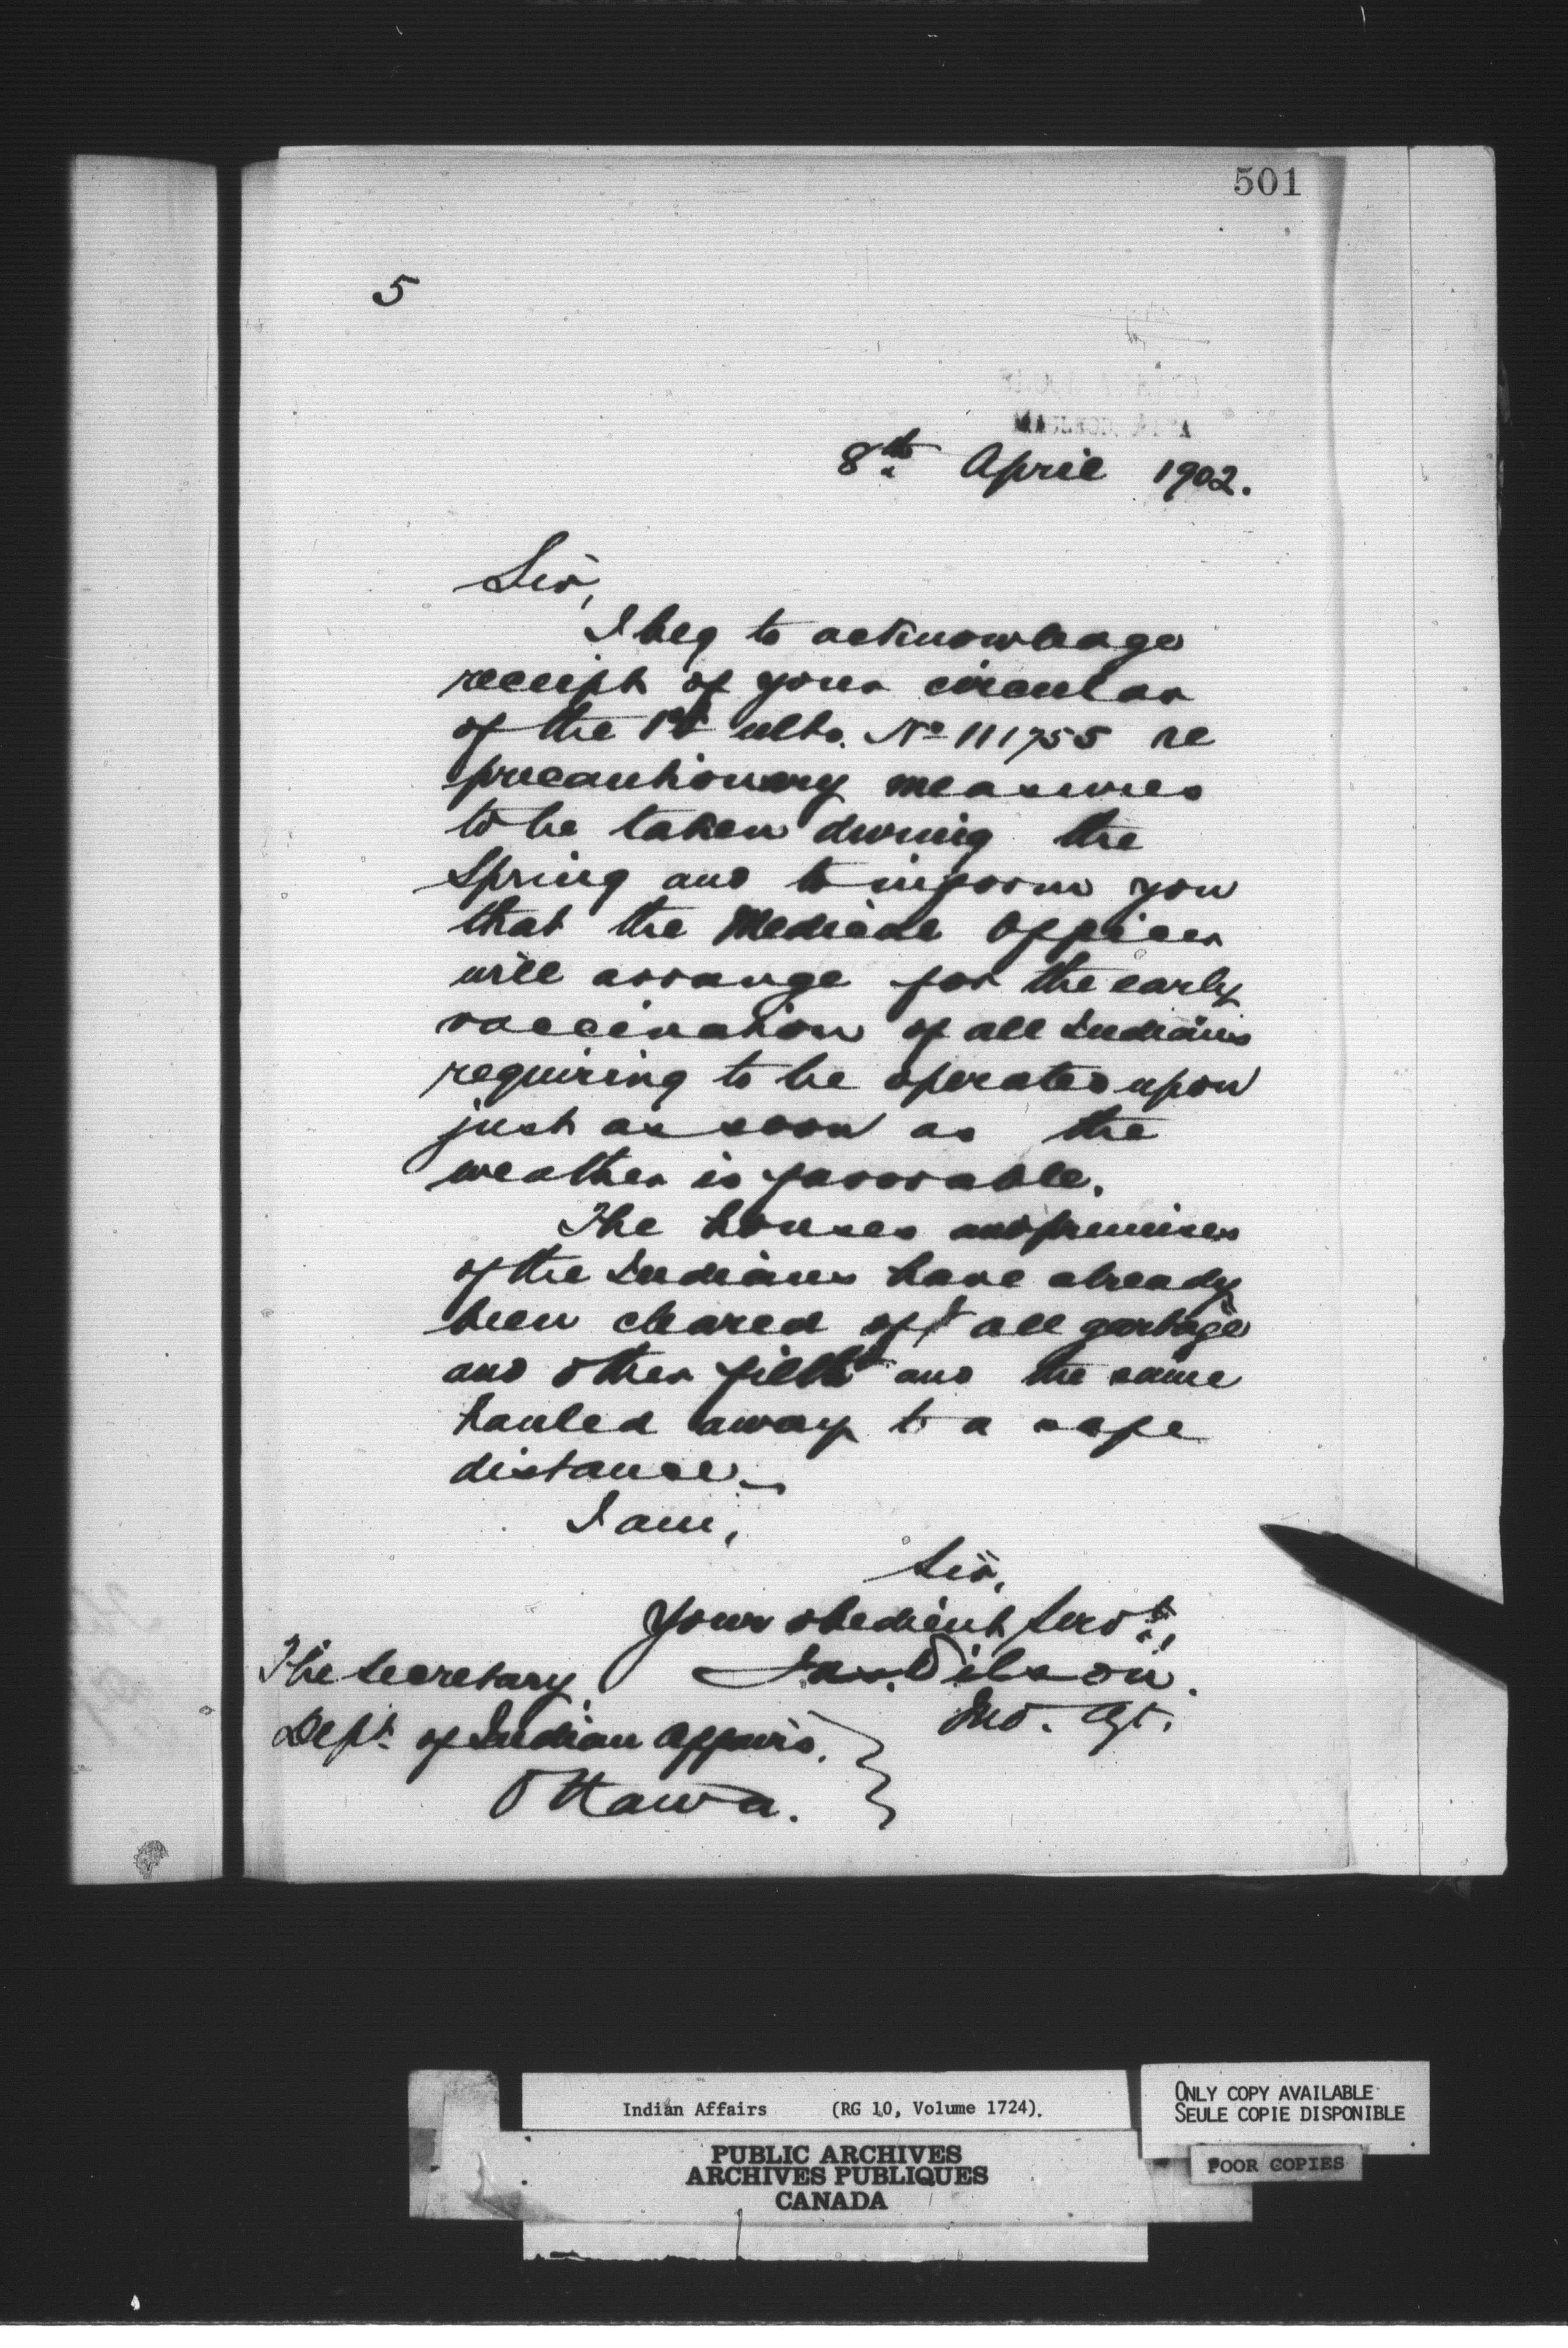 501
5
8th April 1902.
Sir,
I beg to acknowledge
receipt of your circular
of the 1st ulto. No 111755 re
precautionary measures
to be taken during the
Spring and to inform you
that the Medical Officer
will arrange for the early
vaccination of all Indians
requiring to be operated upon
just as soon as the
weather is favorable.
The houses and premises
of the Indians have already
been cleared of all garbage
and other filth and the same
hauled away to a safe
distance.
I am,
Sir,
Your obedient Servt.,
Jas. Wilson.
Ind. Agt.
The Secretary
Dept. of Indian Affairs.
Ottawa.
Indian Affairs (RG 10, Volume 1724).
PUBLIC ARCHIVES
ARCHIVES PUBLIQUES
CANADA
ONLY COPY AVAILABLE
SEULE COPIE DISPONIBLE
POOR COPIES